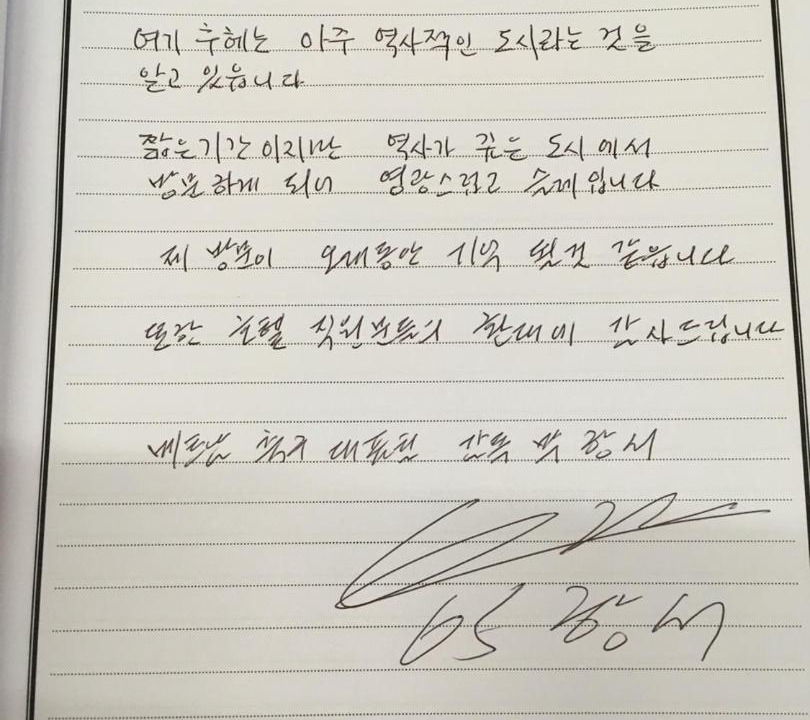 여기 후헤는 아주 역사적인 도시라는 것을
알고 있읍니다
짧은기간이지만 역사가 깊은 도시에서
방문하게 되어 영광스럽고 입니다
제 방문이 오래동안 기억 될것 같읍니다
또한 호텔 직원분들의 환대에 감사드립니다
베트남 축구 대표팀 감독 박 항 서
박 항 서